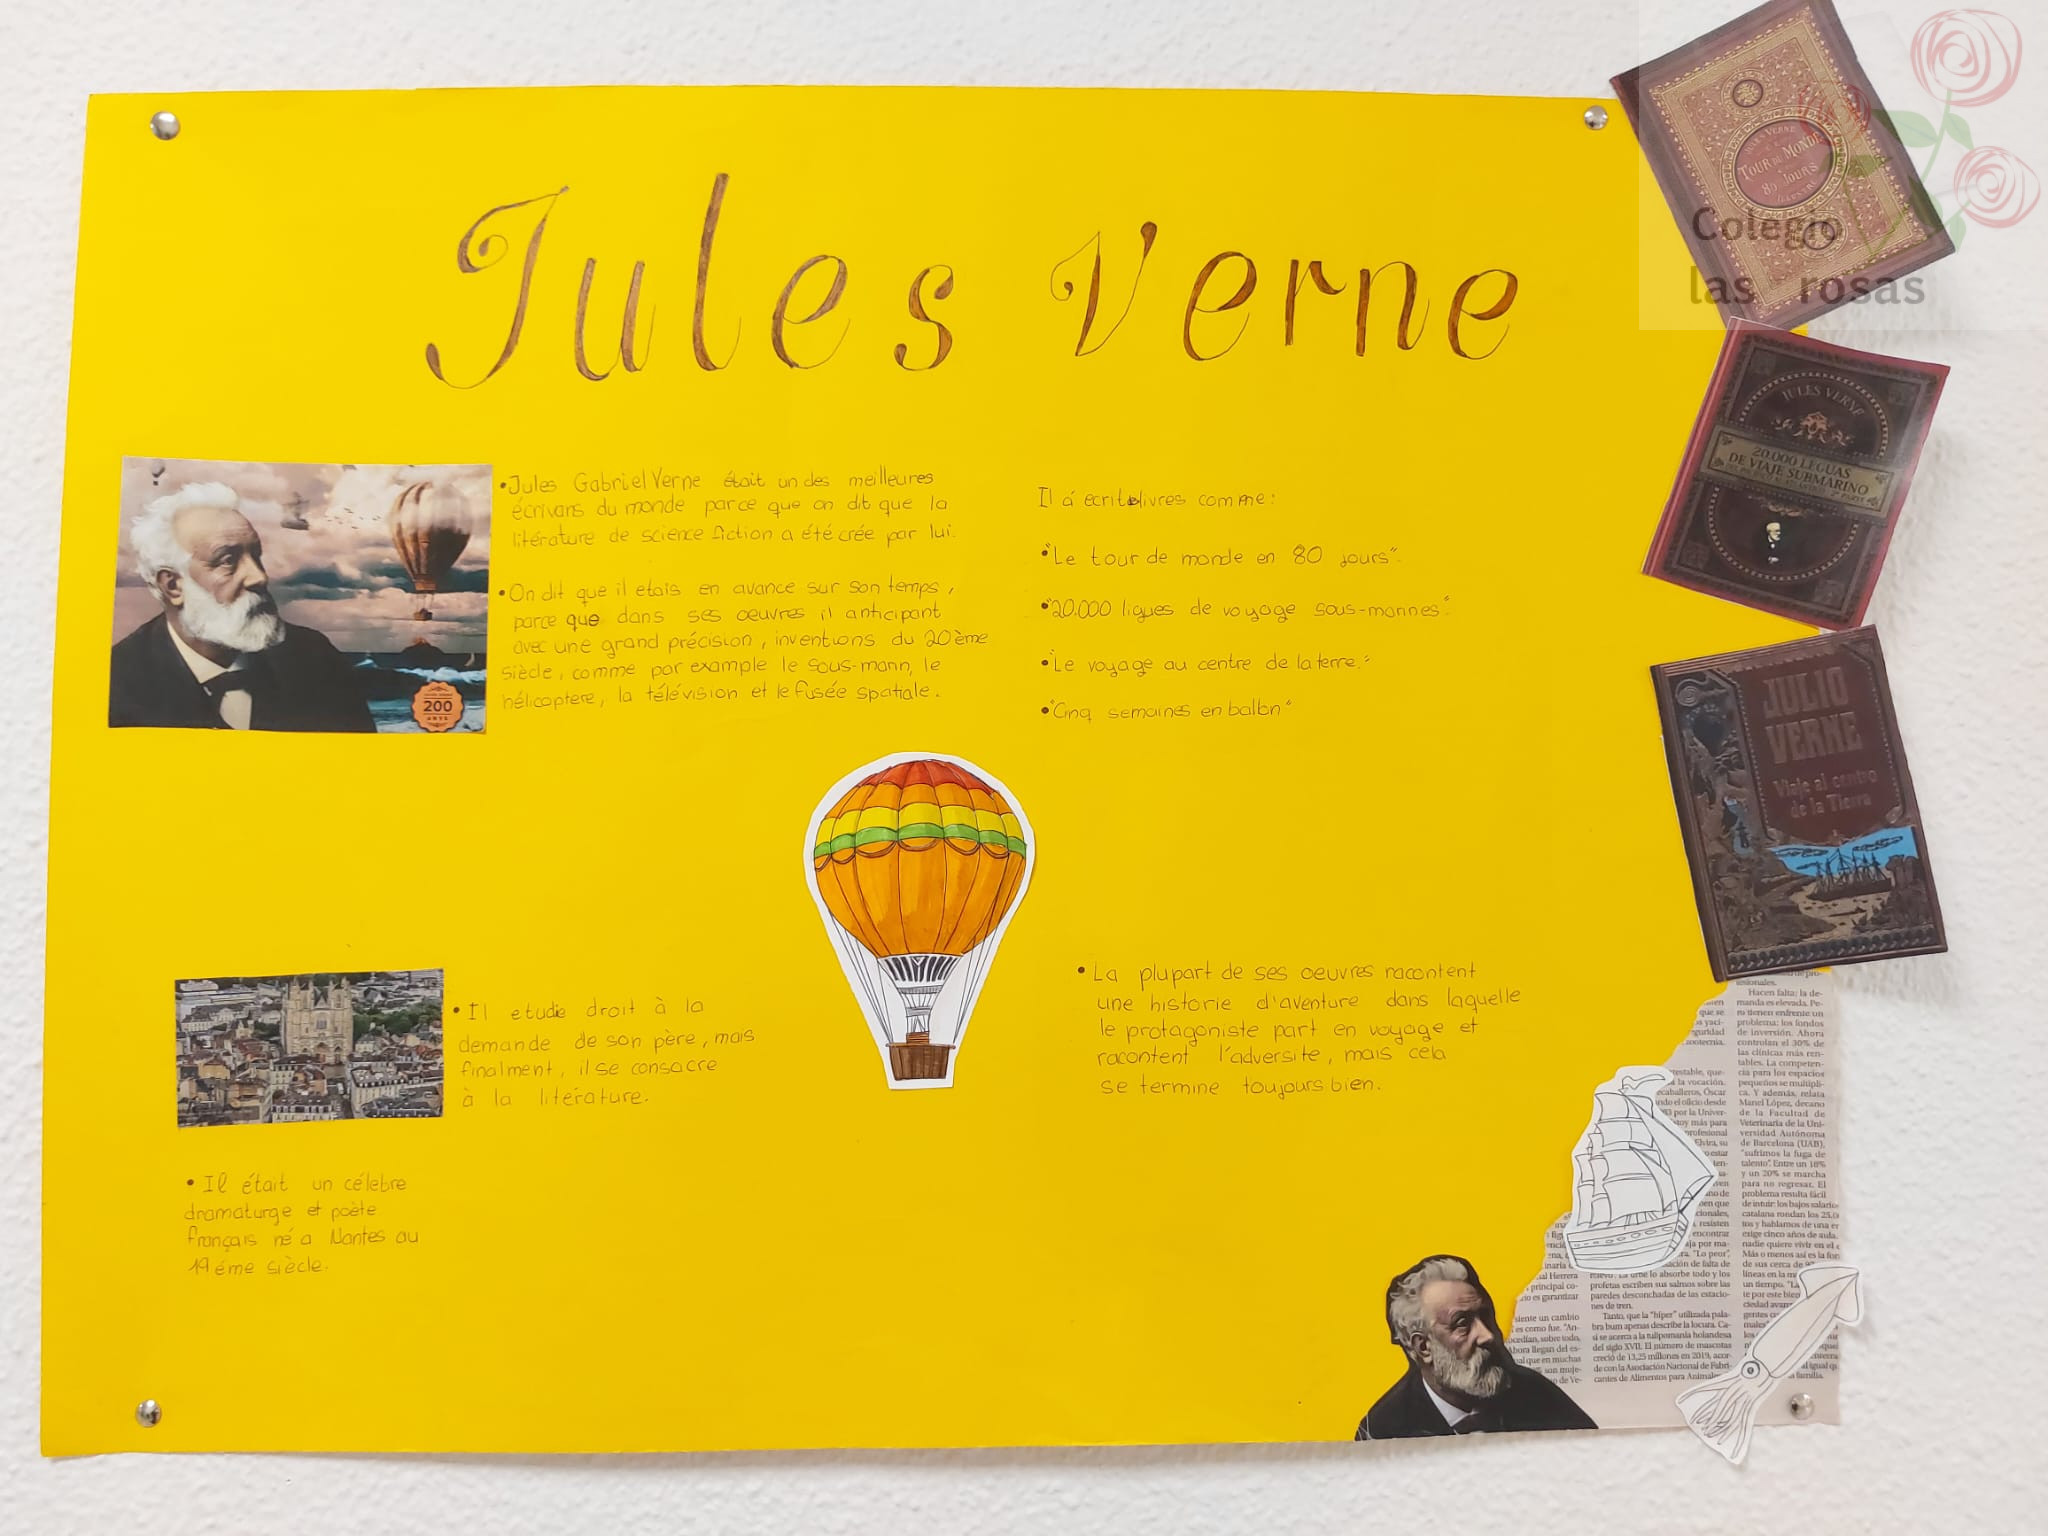 Jules Verne
• Jules Gabriel Verne était un des meilleures
écrivans du monde parce que on dit que la
litérature de science fiction a été crée par lui.
• On dit que il etais en avance sur son temps,
parce que dans ses œuvres il anticipant
avec une grand précision, inventions du 20ème
siècle, comme par example le sous-marin, le
hélicoptere, la télévision et le fusée spatiale.
Il á ecrit livres comme:
• "Le tour de monde en 80 jours".
• "20.000 ligues de voyage sous-marines".
• "Le voyage au centre de la terre."
• "Cinq semaines en ballon"
• Il etudie droit à la
demande de son père, mais
finalment, il se consacre
à la litérature.
• Il était un célebre
dramaturge et poète
français né a Nantes au
19éme siècle.
• La plupart de ses oeuvres racontent
une historie d'aventure dans laquelle
le protagoniste part en voyage et
racontent l'adversite, mais cela
se termine toujours bien.
200
ANYS
JULES VERNE
TOUR DU MONDE
80 JOURS
Colegio
las rosas
JULES VERNE
20.000 LEGUAS
DE VIAJE SUBMARINO
JULIO
VERNE
Viaje al centro
de la Tierra
Hacen falta: la de-
manda es elevada. Pe-
ro tienen enfrente un
problema: los fondos
de inversión. Ahora
controlan el 30% de
las clínicas más ren-
tables. La competen-
cia para los espacios
pequeños se multipli-
ca. Y además, relata
Manel López, decano
de la Facultad de
Veterinaria de la Uni-
versidad Autónoma
de Barcelona (UAB),
"sufrimos la fuga de
talento". Entre un 18%
y un 20% se marcha
para no regresar. El
problema resulta fácil
de intuir: los bajos salarios
catalana rondan los
tos y hablamos de una
exige cinco años de aula.
nadie quiere vivir en el
Más o menos así es la
de sus cerca de
líneas en la
un tiempo.
relevo. La urbe lo absorbe todo y los
profetas escriben sus salmos sobre las
paredes desconchadas de las estacio-
nes de tren.
Tanto, que la "híper" utilizada pala-
bra bum apenas describe la locura. Ca-
si se acerca a la tulipomanía holandesa
del siglo XVII. El número de mascotas
creció de 13,25 millones en 2019, acor-
de con la Asociación Nacional de Fabri-
cantes de Alimentos para
familia.